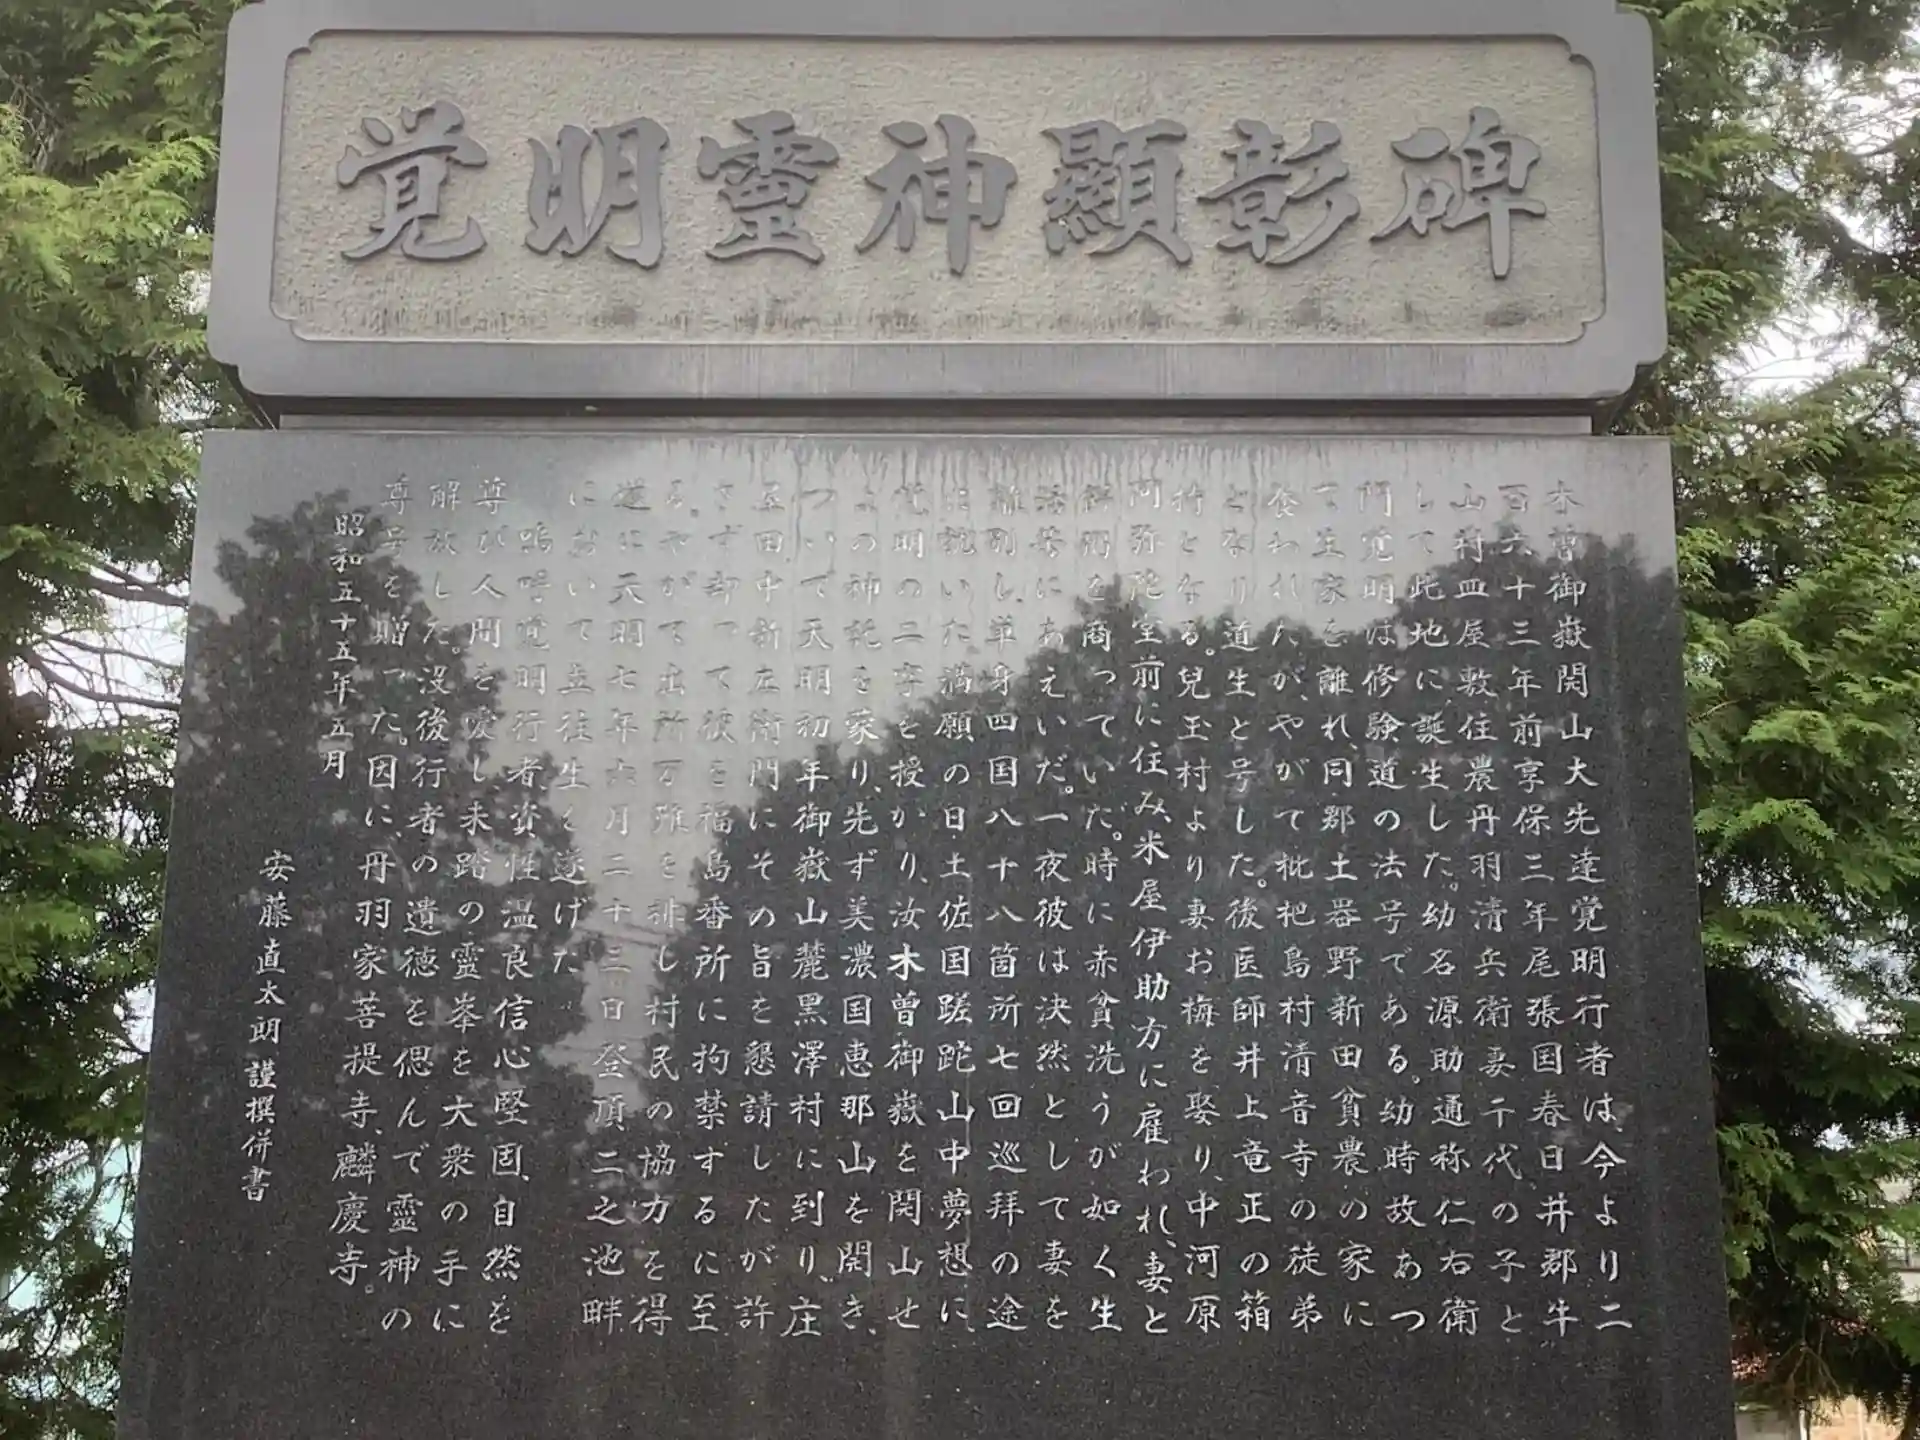 覚明霊神顯彰碑
木曽御嶽開山大先達覚明行者は、今より二
百六十三年前享保三年尾張国春日井郡牛
山村皿屋敷住農丹羽清兵衛妻千代の子と
して此地に誕生した。幼名源助通称仁右衛
門覚明は修験道の法号である。幼時故あつ
て生家を離れ、同郡土器野新田貧農の家に
食われたが、やがて枇杷島村清音寺の徒弟
となり道生と号した。後医師井上竜正の箱
持となる。兒玉村より妻お梅を娶り、中河原
阿弥陀堂前に住み、米屋伊助方に雇われ、妻と
餅粥を商っていだ。時に赤貧洗うが如く生
活苦にあえいだ。一夜彼は決然として妻を
離別し、単身四国八十八箇所七回巡拝の途
に就いた。満願の日土佐国蹉跎山中夢想に、
覚明の二字を授かり、汝木曽御嶽を開山せ
よの神託を蒙り、先ず美濃国恵那山を開き、
ついで天明初年御嶽山麓黒澤村に到り、庄
屋田中新左衛門にその旨を懇請したが許
さず却って彼を福島番所に拘禁するに至
る。やがて出所万難を排し村民の協力を得
遂に天明七年六月二十三日登頂、二之池畔
において立往生を遂げた
嗚呼覚明行者、資性温良信心堅固、自然を
尊び人間を愛し、未踏の霊峯を大衆の手に
解放した。没後行者の遺徳を偲んで霊神の
尊号を贈った。因に、丹羽家菩提寺、麟慶寺。
昭和五十五年五月
安藤直太朗 謹撰併書